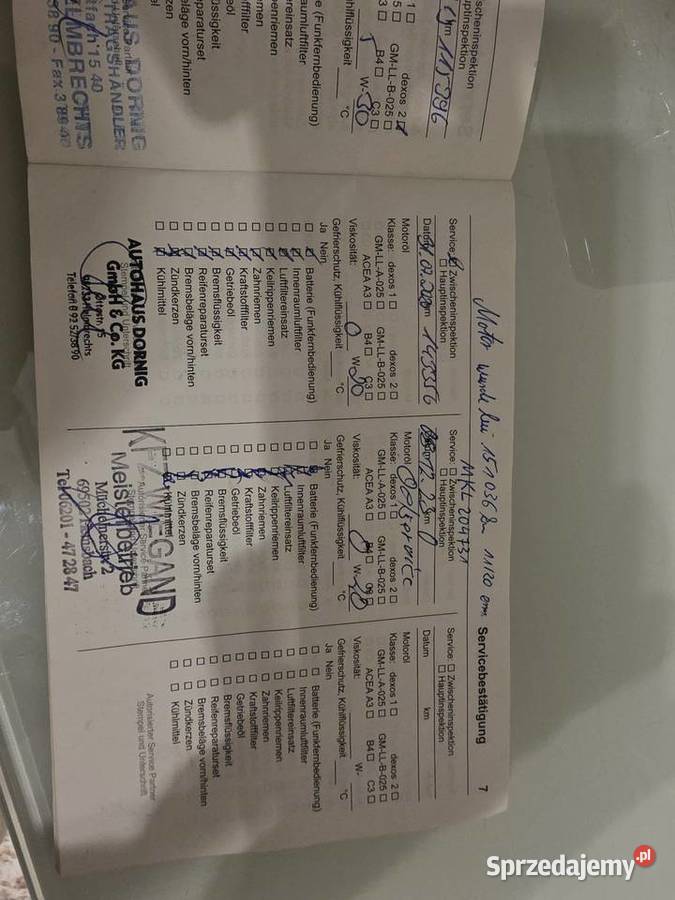 Servicebestätigung 7
Motor wurde bei 151036 km 11/20 ern
MKL 200731
Service: Zwischeninspektion
Hauptinspektion
km 115996
dexos 2
GM-LL-B-025
B4 C3
W-30
°C
(Funkfernbedienung)
AUS DORNIG
TRAGSHÄNDLER
ELMBRECHTS
Service: Zwischeninspektion
Hauptinspektion
Datum km
Motoröl
Klasse: dexos 1 dexos 2
GM-LL-A-025 GM-LL-B-025
ACEA A3 B4 C3
Viskosität: 0 W-
Gefrierschutz, Kühlflüssigkeit °C
Ja Nein
Batterie (Funkfernbedienung)
Innenraumluftfilter
Luftfiltereinsatz
Keilrippenriemen
Zahnriemen
Kraftstofffilter
Getriebeöl
Bremsflüssigkeit
Reifenreparaturset
Bremsbeläge vorn/hinten
Zündkerzen
Kühlmittel
AUTOHAUS DORNIG
GmbH & Co. KG
Service: Zwischeninspektion
Hauptinspektion
Motoröl
Klasse: dexos 1 dexos 2
GM-LL-A-025 GM-LL-B-025
ACEA A3
Viskosität: 0 W-
Gefrierschutz, Kühlflüssigkeit °C
Ja Nein
Batterie (Funkfernbedienung)
Innenraumluftfilter
Luftfiltereinsatz
Keilrippenriemen
Zahnriemen
Kraftstofffilter
Getriebeöl
Bremsflüssigkeit
Reifenreparaturset
Bremsbeläge vorn/hinten
Zündkerzen
Kühlmittel
KFZ WIEGAND
Meisterbetrieb
Tel. 06201 - 47 28 47
Service: Zwischeninspektion
Hauptinspektion
Datum km
Motoröl
Klasse: dexos 1 dexos 2
GM-LL-A-025 GM-LL-B-025
ACEA A3 B4 C3
Viskosität: W-
Gefrierschutz, Kühlflüssigkeit °C
Ja Nein
Batterie (Funkfernbedienung)
Innenraumluftfilter
Luftfiltereinsatz
Keilrippenriemen
Zahnriemen
Kraftstofffilter
Getriebeöl
Bremsflüssigkeit
Reifenreparaturset
Bremsbeläge vorn/hinten
Zündkerzen
Kühlmittel
Autorisierter Service Partner
Stempel und Unterschrift
Sprzedajemy.pl